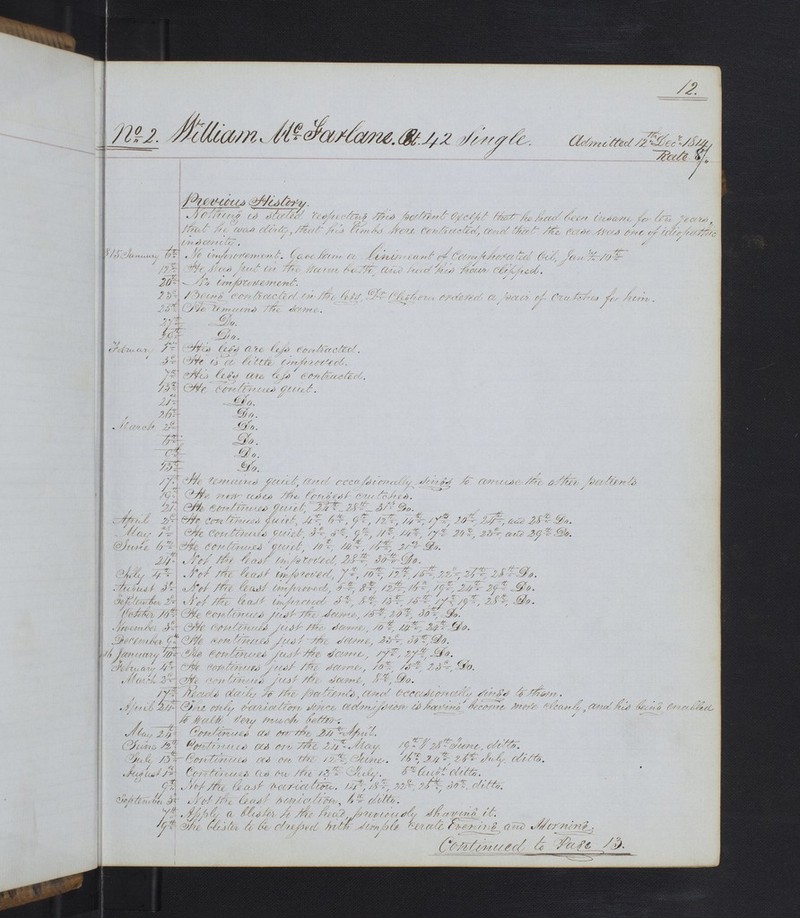 12.
No. 2. William McFarlane. Æt. 42 Single. Admitted 12th Decr. 1814
Rate 8/.
Previous History.
Nothing is stated respecting this patient except that he had been insane for ten years,
that he was dirty, that his limbs were contracted, and that the case was one of idiopathic
insanity.
1815 January 6th No improvement. Gave him a Liniment of Camphorated Oil,
He was put in the warm bath, and had his hair clipped.
20th No improvement.
23d Being contracted in the legs, Dr. Cleghorn ordered a pair of Crutches for him.
25th He remains the same.
27th Do.
30th Do.
February His legs are less contracted.
5th He is a little improved.
7th His legs are less contracted.
15th He continues quiet.
21st Do.
26th Do.
March 2d Do.
6th Do.
Do.
Do.
17th He remains quiet, and occasionally sings to amuse the other patients
19th He now uses the longest crutches.
21st He continues quiet, 24th 28th 31st Do.
April 2d He continues quiet, 4th, 6th, 9th, 12th, 14th, 17th, 20th, 24th, and 28th Do.
May 1st He continues quiet, 3d, 5th, 9th, 11th, 14th, 17th, 20th, 25th and 29th Do.
June He continues quiet, 10th, 14th, 16th, 21st Do.
24th Not the least improved, 28th, 30th Do.
July 4th Not the least improved, 7th, 10th, 12th, 18th, 22d, 25th, 28th Do.
August 3d Not the least improved, 8th, 12th, 16th, 19th, 24th, 29th Do.
September 2d Not the least improved, 5th, 8th, 13th, 15th, 17th, 19th, 28th, Do.
October 10th He continues just the same, 15th, 20th, 30th, Do.
November 3d He continues just the same, 10th, 14th, 24th Do.
December 9th He continues just the same, 30th, Do.
16 January 10th He continues just the same, 17th, 27th, Do.
February 4th He continues just the same, 10th, 15th, 23d, Do.
March 2d He continues just the same, 8th, Do.
17th Reads daily to the patients, and occasionally sings to them.
April 24th The only variation since admission is having become more cleanly, and his being enabled
to walk very much better.
May 24th Continues as on the 24th April.
June 12th Continues as on the 24th May. 19th & 28th June, ditto.
July 13th Continues as on the 12th June. 16th, 24th, 28th July, ditto.
August 1st Continues as on the 13th July. 5th Augt. ditto.
9th Not the least variation, 15th, 18th, 22d, 26th, 30th, ditto.
September 3d Not the least variation, 4th ditto.
7th Apply a blister to the head, previously shaving it.
19th The blister to be dressed with simple Cerate Evening and Morning.
Continued to Page 13.